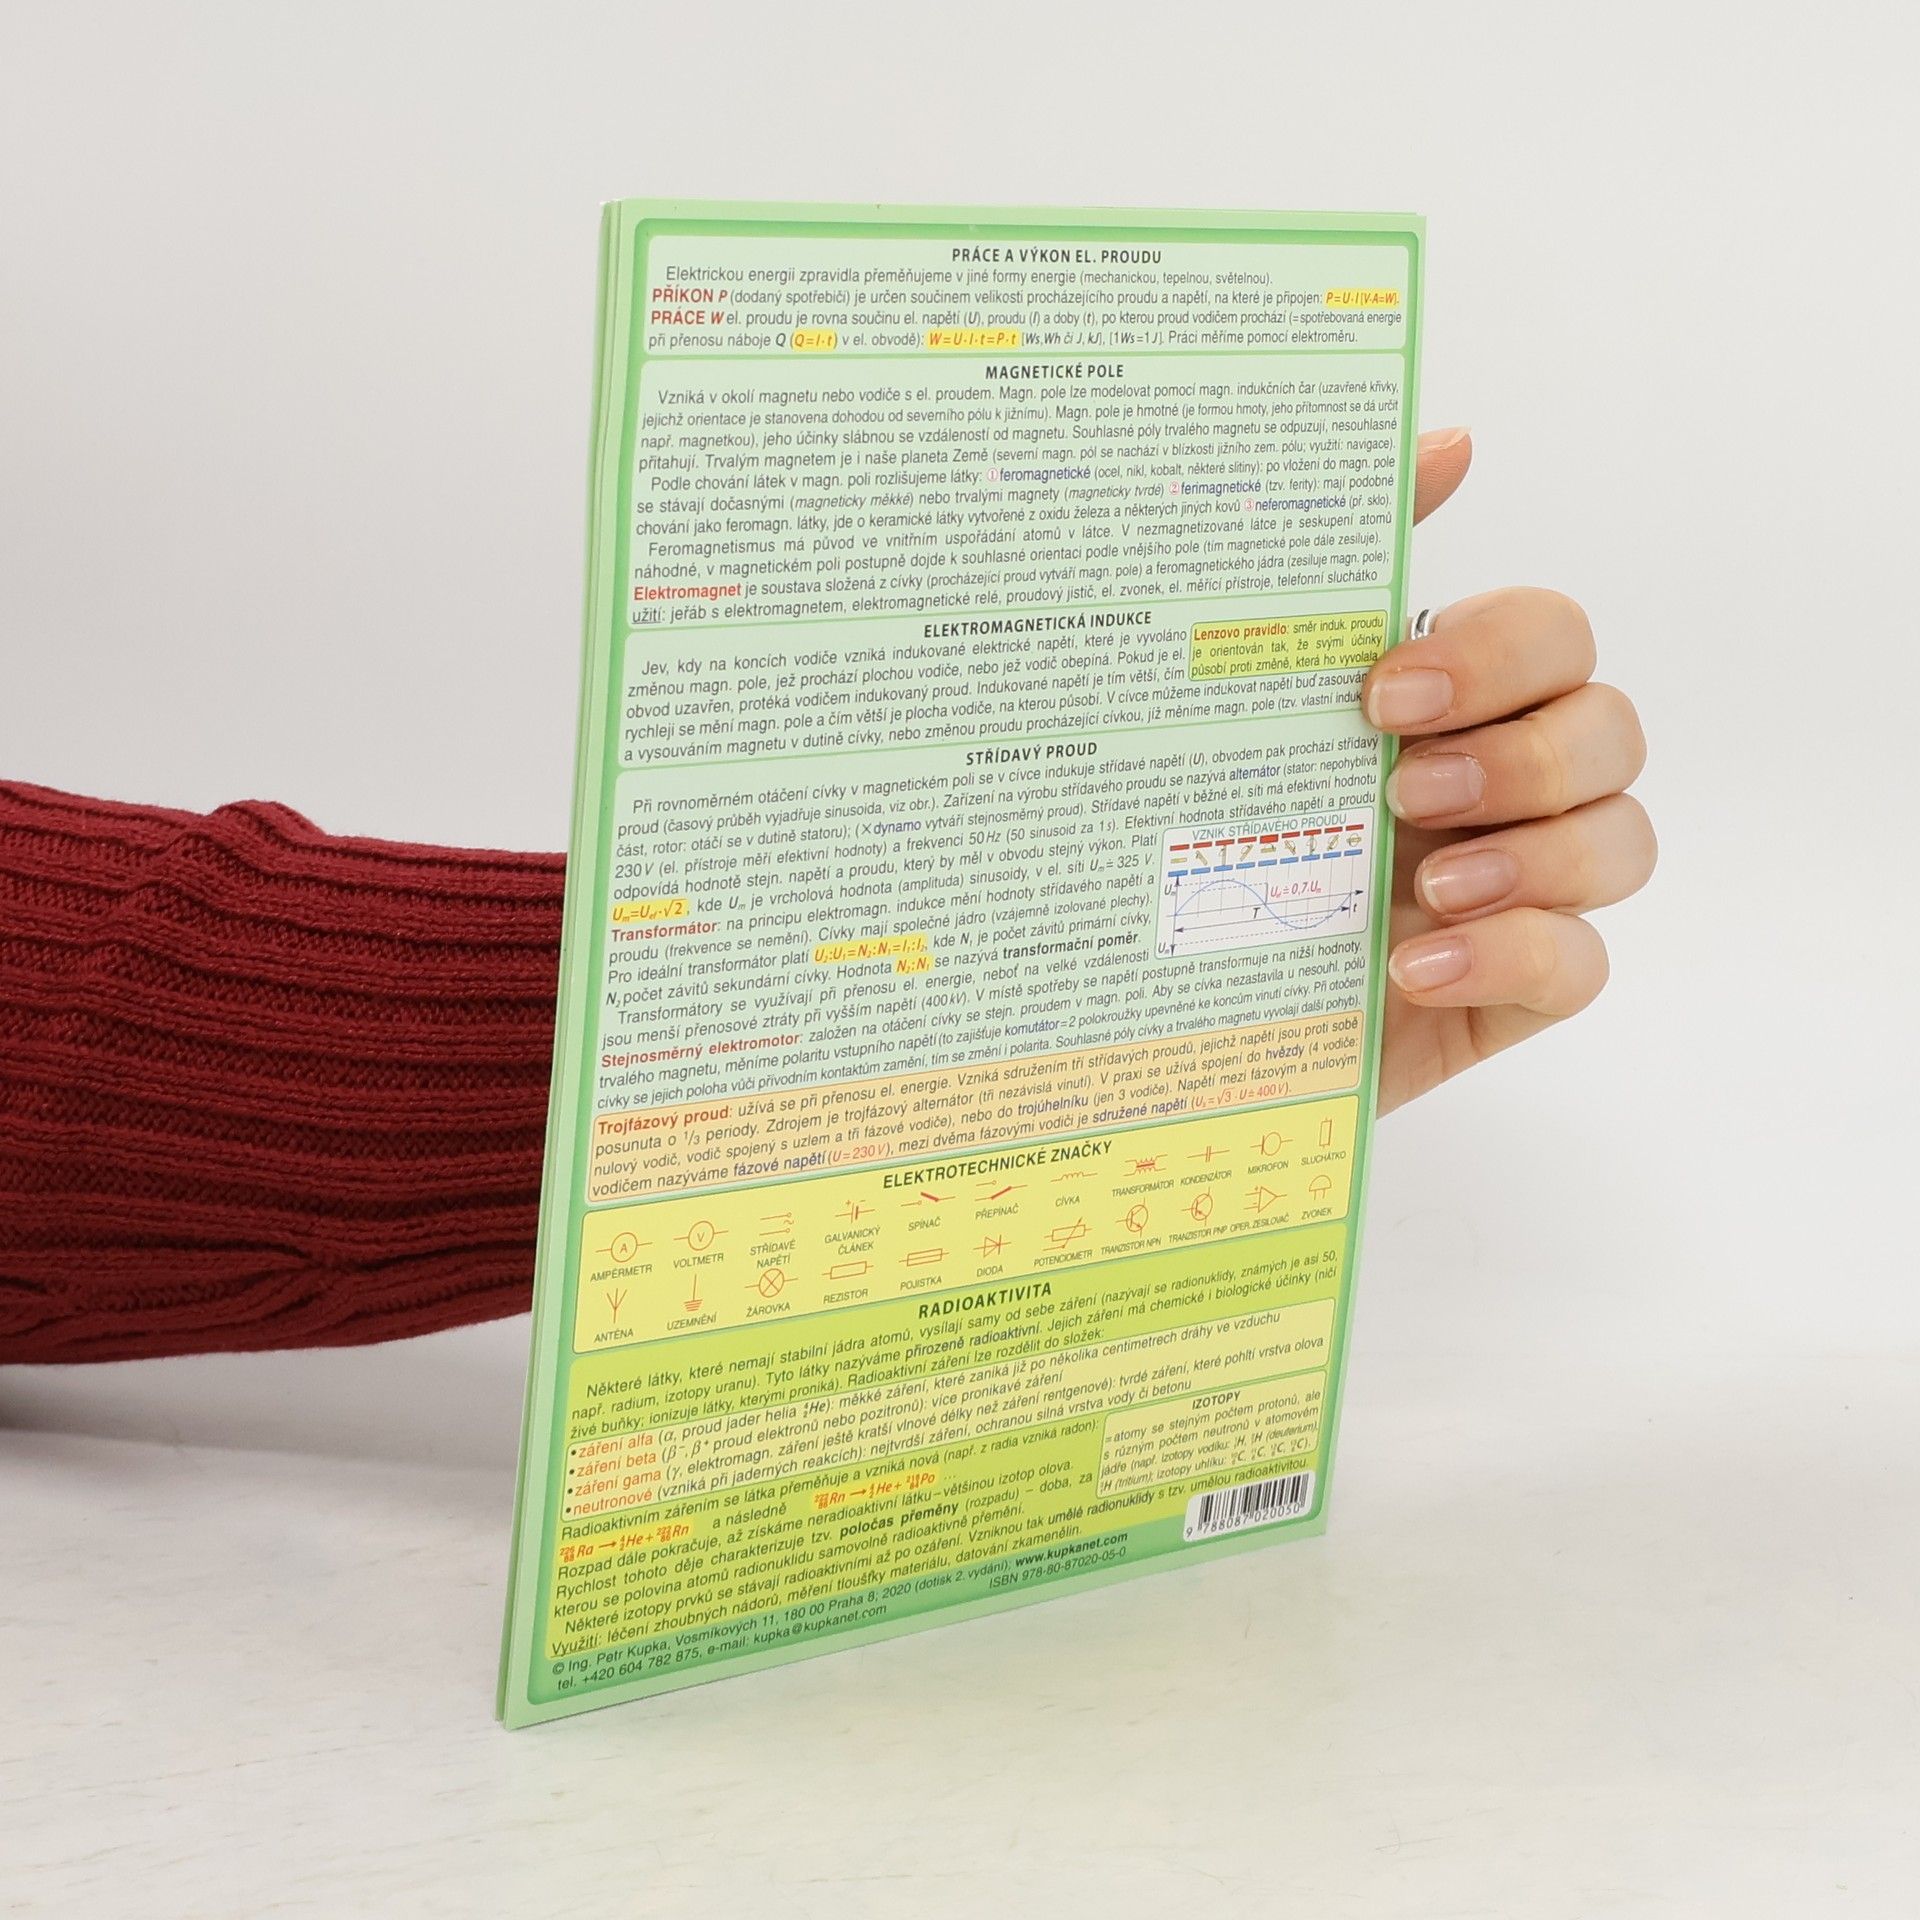 PRÁCE A VÝKON EL. PROUDU
Elektrickou energii zpravidla přeměňujeme v jiné formy energie (mechanickou, tepelnou, světelnou).
PŘÍKON P (dodaný spotřebiči) je určen součinem velikosti procházejícího proudu a napětí, na které je připojen: P=U·I [V·A=W].
PRÁCE W el. proudu je rovna součinu el. napětí (U), proudu (I) a doby (t), po kterou proud vodičem prochází (=spotřebovaná energie
při přenosu náboje Q (Q=I·t) v el. obvodě): W=U·I·t=P·t [Ws,Wh či J, kJ], [1Ws=1J]. Práci měříme pomocí elektroměru.
MAGNETICKÉ POLE
Vzniká v okolí magnetu nebo vodiče s el. proudem. Magn. pole lze modelovat pomocí magn. indukčních čar (uzavřené křivky,
jejichž orientace je stanovena dohodou od severního pólu k jižnímu). Magn. pole je hmotné (je formou hmoty, jeho přítomnost se dá určit
např. magnetkou), jeho účinky slábnou se vzdáleností od magnetu. Souhlasné póly trvalého magnetu se odpuzují, nesouhlasné
přitahují. Trvalým magnetem je i naše planeta Země (severní magn. pól se nachází v blízkosti jižního zem. pólu; využití: navigace).
Podle chování látek v magn. poli rozlišujeme látky: ① feromagnetické (ocel, nikl, kobalt, některé slitiny): po vložení do magn. pole
se stávají dočasnými (magneticky měkké) nebo trvalými magnety (magneticky tvrdé) ② ferimagnetické (tzv. ferity): mají podobné
chování jako feromagn. látky, jde o keramické látky vytvořené z oxidu železa a některých jiných kovů ③ neferomagnetické (př. sklo).
Feromagnetismus má původ ve vnitřním uspořádání atomů v látce. V nezmagnetizované látce je seskupení atomů
náhodné, v magnetickém poli postupně dojde k souhlasné orientaci podle vnějšího pole (tím magnetické pole dále zesiluje).
Elektromagnet je soustava složená z cívky (procházející proud vytváří magn. pole) a feromagnetického jádra (zesiluje magn. pole);
užití: jeřáb s elektromagnetem, elektromagnetické relé, proudový jistič, el. zvonek, el. měřící přístroje, telefonní sluchátko
ELEKTROMAGNETICKÁ INDUKCE
Jev, kdy na koncích vodiče vzniká indukované elektrické napětí, které je vyvoláno
změnou magn. pole, jež prochází plochou vodiče, nebo jež vodič obepíná. Pokud je el.
obvod uzavřen, protéká vodičem indukovaný proud. Indukované napětí je tím větší, čím
rychleji se mění magn. pole a čím větší je plocha vodiče, na kterou působí. V cívce můžeme indukovat napětí buď zasouván
a vysouváním magnetu v dutině cívky, nebo změnou proudu procházející cívkou, jíž měníme magn. pole (tzv. vlastní induk
Lenzovo pravidlo: směr induk. proudu
je orientován tak, že svými účinky
působí proti změně, která ho vyvolala.
STŘÍDAVÝ PROUD
Při rovnoměrném otáčení cívky v magnetickém poli se v cívce indukuje střídavé napětí (U), obvodem pak prochází střídavý
proud (časový průběh vyjadřuje sinusoida, viz obr.). Zařízení na výrobu střídavého proudu se nazývá alternátor (stator: nepohyblivá
část, rotor: otáčí se v dutině statoru); (× dynamo vytváří stejnosměrný proud). Střídavé napětí v běžné el. síti má efektivní hodnotu
230V (el. přístroje měří efektivní hodnoty) a frekvenci 50Hz (50 sinusoid za 1s). Efektivní hodnota střídavého napětí a proudu
odpovídá hodnotě stejn. napětí a proudu, který by měl v obvodu stejný výkon. Platí
Um=Uef·√2, kde Um je vrcholová hodnota (amplituda) sinusoidy, v el. síti Um≐325 V.
Transformátor: na principu elektromagn. indukce mění hodnoty střídavého napětí a
proudu (frekvence se nemění). Cívky mají společné jádro (vzájemně izolované plechy).
Pro ideální transformátor platí U2:U1=N2:N1=I1:I2, kde N1 je počet závitů primární cívky,
N2 počet závitů sekundární cívky. Hodnota N2:N1 se nazývá transformační poměr.
Transformátory se využívají při přenosu el. energie, neboť na velké vzdálenosti
jsou menší přenosové ztráty při vyšším napětí (400kV). V místě spotřeby se napětí postupně transformuje na nižší hodnoty.
VZNIK STŘÍDAVÉHO PROUDU
Um
Uef≐0,7.Um
T
t
Um
Stejnosměrný elektromotor: založen na otáčení cívky se stejn. proudem v magn. poli. Aby se cívka nezastavila u nesouhl. pólů
trvalého magnetu, měníme polaritu vstupního napětí (to zajišťuje komutátor=2 polokroužky upevněné ke koncům vinutí cívky. Při otočení
cívky se jejich poloha vůči přívodním kontaktům zamění, tím se změní i polarita. Souhlasné póly cívky a trvalého magnetu vyvolají další pohyb).
Trojfázový proud: užívá se při přenosu el. energie. Vzniká sdružením tří střídavých proudů, jejichž napětí jsou proti sobě
posunuta o 1/3 periody. Zdrojem je trojfázový alternátor (tři nezávislá vinutí). V praxi se užívá spojení do hvězdy (4 vodiče:
nulový vodič, vodič spojený s uzlem a tři fázové vodiče), nebo do trojúhelníku (jen 3 vodiče). Napětí mezi fázovým a nulovým
vodičem nazýváme fázové napětí (U=230V), mezi dvěma fázovými vodiči je sdružené napětí (Us=√3·U≐400V).
ELEKTROTECHNICKÉ ZNAČKY
A
AMPÉRMETR
V
VOLTMETR
STŘÍDAVÉ NAPĚTÍ
GALVANICKÝ ČLÁNEK
SPÍNAČ
PŘEPÍNAČ
CÍVKA
TRANSFORMÁTOR
KONDENZÁTOR
MIKROFON
SLUCHÁTKO
ANTÉNA
UZEMNĚNÍ
ŽÁROVKA
REZISTOR
POJISTKA
DIODA
POTENCIOMETR
TRANZISTOR NPN
TRANZISTOR PNP
OPER. ZESILOVAČ
ZVONEK
RADIOAKTIVITA
Některé látky, které nemají stabilní jádra atomů, vysílají samy od sebe záření (nazývají se radionuklidy, známých je asi 50,
např. radium, izotopy uranu). Tyto látky nazýváme přirozeně radioaktivní. Jejich záření má chemické i biologické účinky (ničí
živé buňky; ionizuje látky, kterými proniká). Radioaktivní záření lze rozdělit do složek:
•záření alfa (α, proud jader helia ⁴₂He): měkké záření, které zaniká již po několika centimetrech dráhy ve vzduchu
•záření beta (β⁻, β⁺ proud elektronů nebo pozitronů): více pronikavé záření
•záření gama (γ, elektromagn. záření ještě kratší vlnové délky než záření rentgenové): tvrdé záření, které pohltí vrstva olova
•neutronové (vzniká při jaderných reakcích): nejtvrdší záření, ochranou silná vrstva vody či betonu
Radioaktivním zářením se látka přeměňuje a vzniká nová (např. z radia vzniká radon):
²²⁶₈₈Ra → ⁴₂He + ²²²₈₆Rn a následně ²²²₈₆Rn → ⁴₂He + ²¹⁸₈₄Po ...
Rozpad dále pokračuje, až získáme neradioaktivní látku – většinou izotop olova.
Rychlost tohoto děje charakterizuje tzv. poločas přeměny (rozpadu) – doba, za
kterou se polovina atomů radionuklidu samovolně radioaktivně přemění.
Některé izotopy prvků se stávají radioaktivními až po ozáření. Vzniknou tak umělé radionuklidy s tzv. umělou radioaktivitou.
Využití: léčení zhoubných nádorů, měření tloušťky materiálu, datování zkamenělin.
IZOTOPY
=atomy se stejným počtem protonů, ale
s různým počtem neutronů v atomovém
jádře (např. izotopy vodíku: ¹₁H, ²₁H (deuterium),
³₁H (tritium); izotopy uhlíku:
9 788087 020050
© Ing. Petr Kupka, Vosmíkových 11, 180 00 Praha 8; 2020 (dotisk 2. vydání); www.kupkanet.com
tel. +420 604 782 875, e-mail: kupka@kupkanet.com ISBN 978-80-87020-05-0